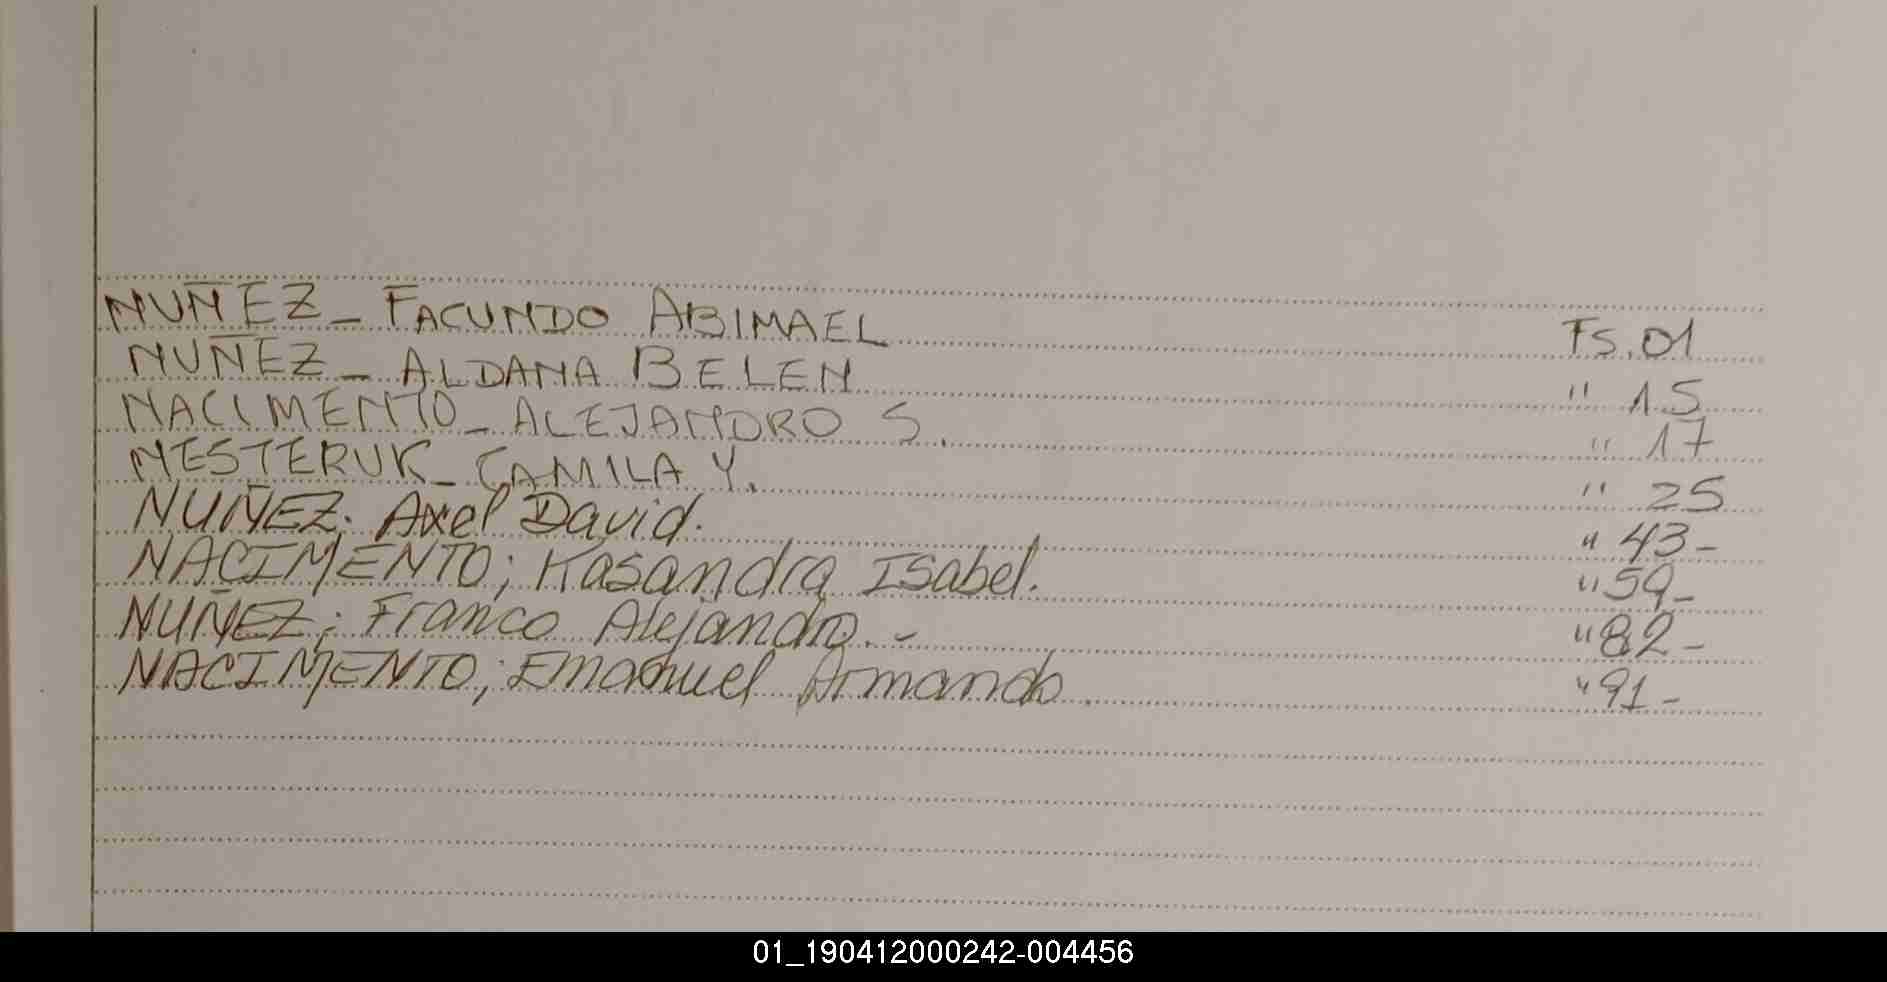 NUÑEZ_ FACUNDO ABIMAEL Fs. 01
NUÑEZ_ ALDANA BELEN " 15
NACIMENTO_ ALEJANDRO S. " 17
NESTERUK_ CAMILA Y. " 25
NUÑEZ. Axel David. " 43-
NACIMENTO; Kasandra Isabel. " 59-
NUÑEZ; Franco Alejandro. - " 82-
NACIMENTO; Emanuel Armando " 91-
01_190412000242-004456